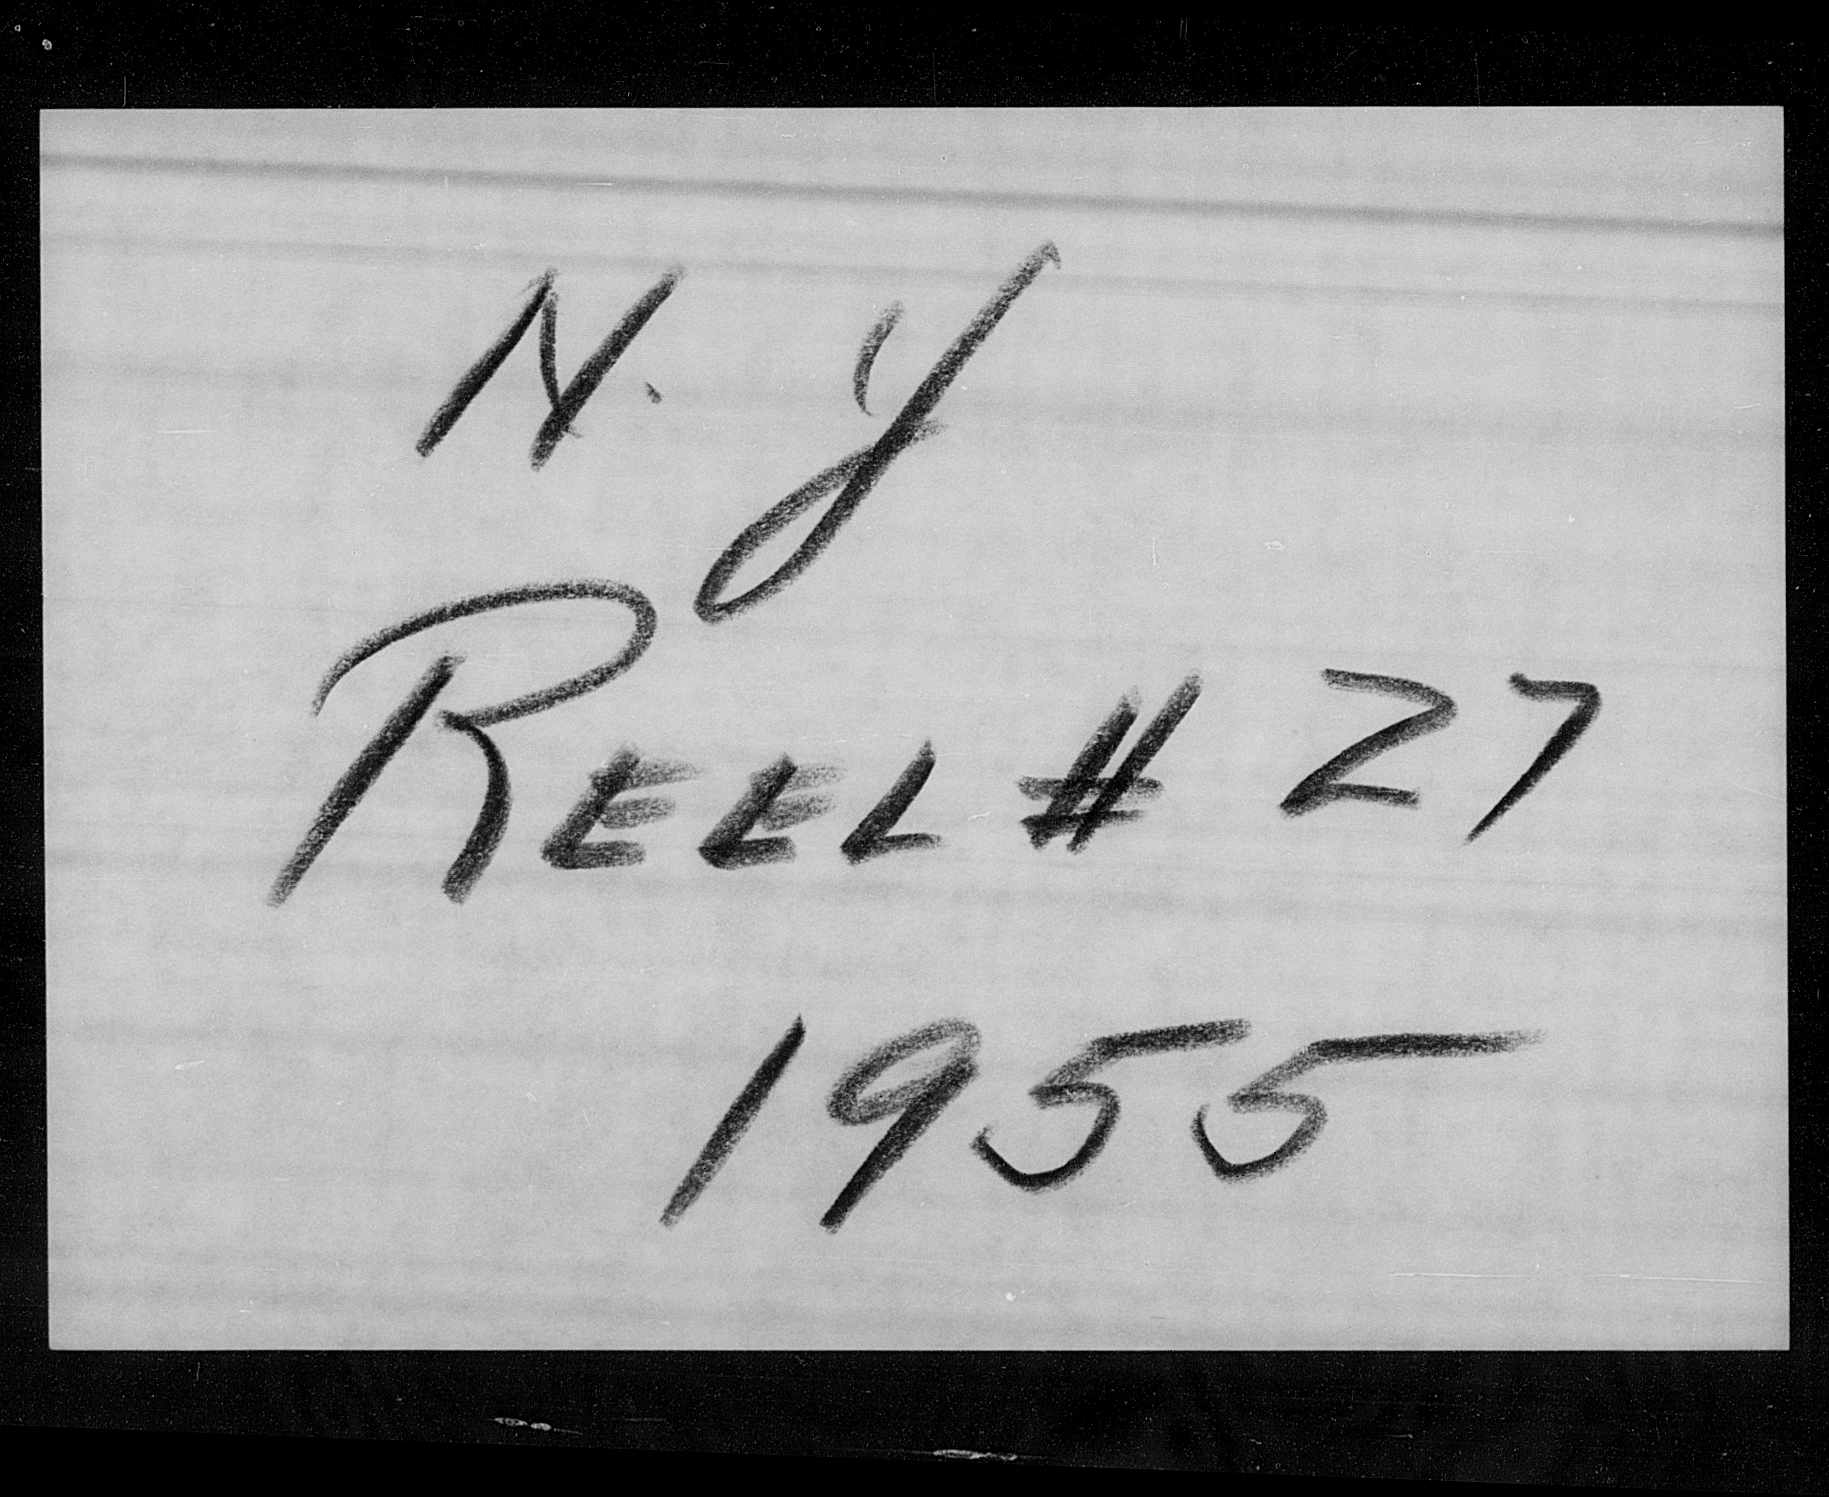 N. Y
REEL # 27
1955